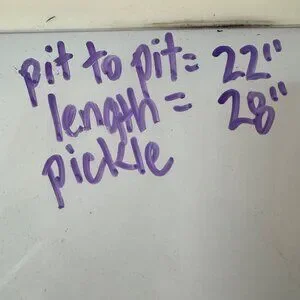 pit to pit= 22"
length = 28"
pickle